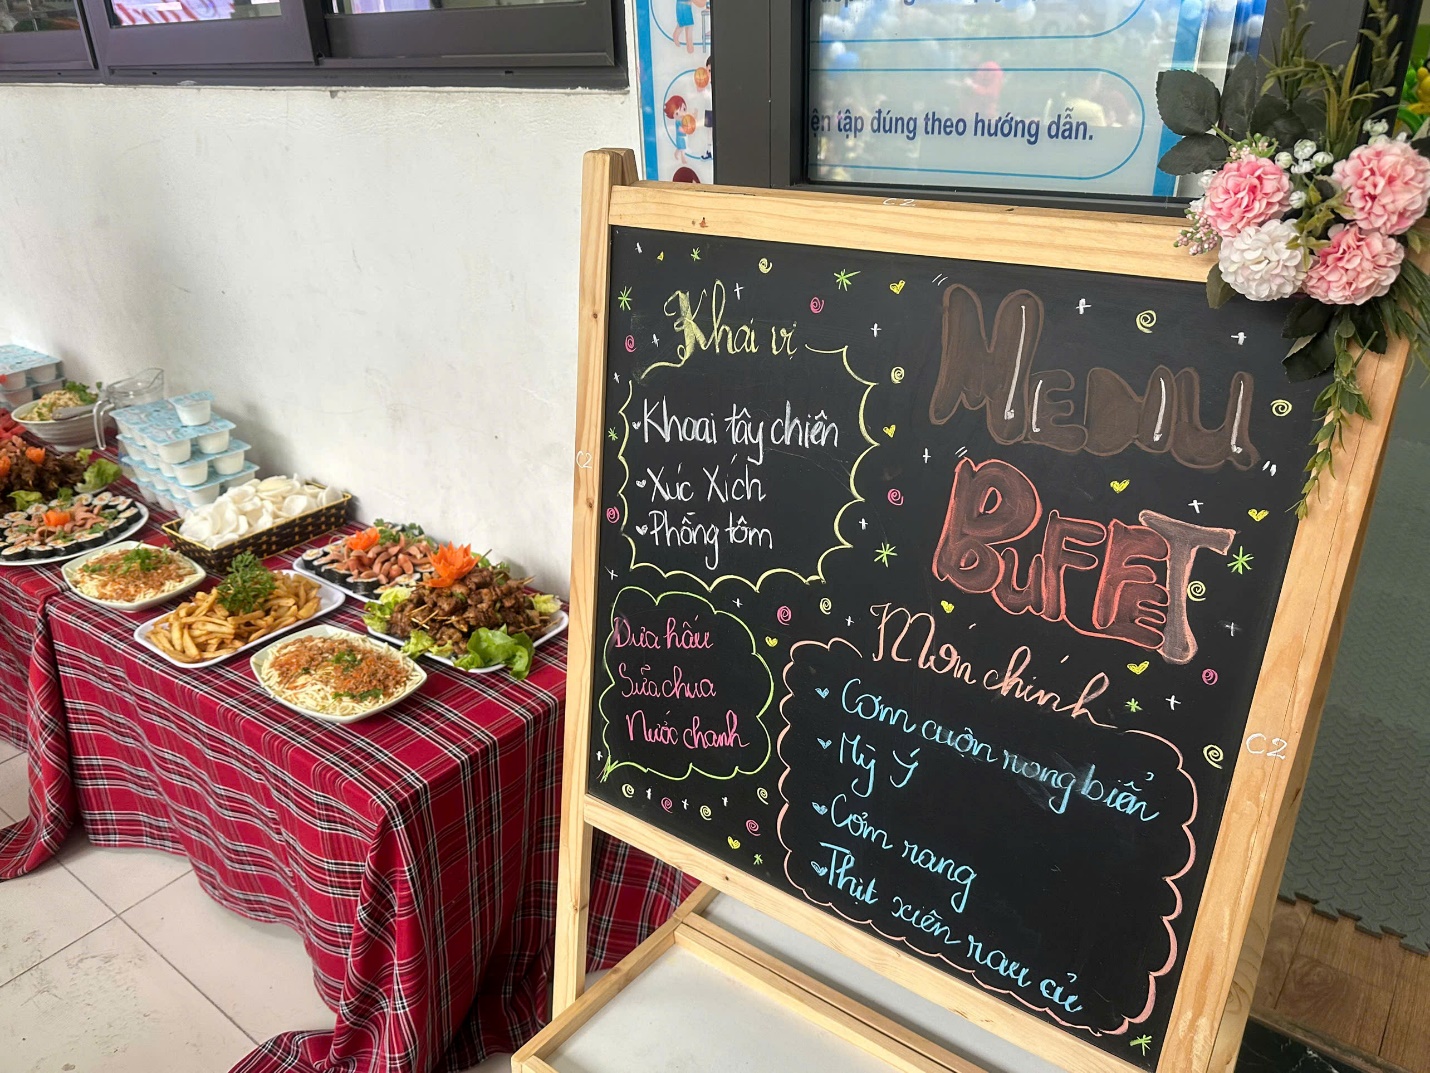 ện tập đúng theo hướng dẫn.
C2
Khai vị
Khoai tây chiên
Xúc Xích
Phồng tôm
Dưa hấu
Sữa chua
Nước chanh
MENU
BUFFET
Món chính
Cơm cuộn rong biển
Mỳ Ý
Cơm rang
Thịt xiên rau củ
C2
C2